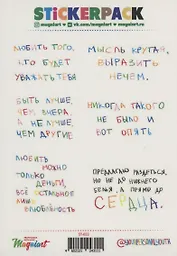 STICKERPACK
magniart vk.com/magniart magniart.ru
ЛЮБИТЬ ТОГО,
КТО БУДЕТ
УВАЖАТЬ ТЕБЯ
МЫСЛЬ КРУТАЯ,
ВЫРАЗИТЬ
НЕЧЕМ.
БЫТЬ ЛУЧШЕ,
ЧЕМ ВЧЕРА,
А НЕ ЛУЧШЕ,
ЧЕМ ДРУГИЕ
НИКОГДА ТАКОГО
НЕ БЫЛО И
ВОТ ОПЯТЬ
ЛЮБИТЬ
МОЖНО
ТОЛЬКО
ДЕНЬГИ,
ВСЁ ОСТАЛЬНОЕ
ЛИШЬ
ВЛЮБЛЁННОСТЬ
ПРЕДЛАГАЮ РАЗДЕТЬСЯ,
НО НЕ ДО НИЖНЕГО
БЕЛЬЯ, А ПРЯМО ДО
СЕРДЦА.
Magniart